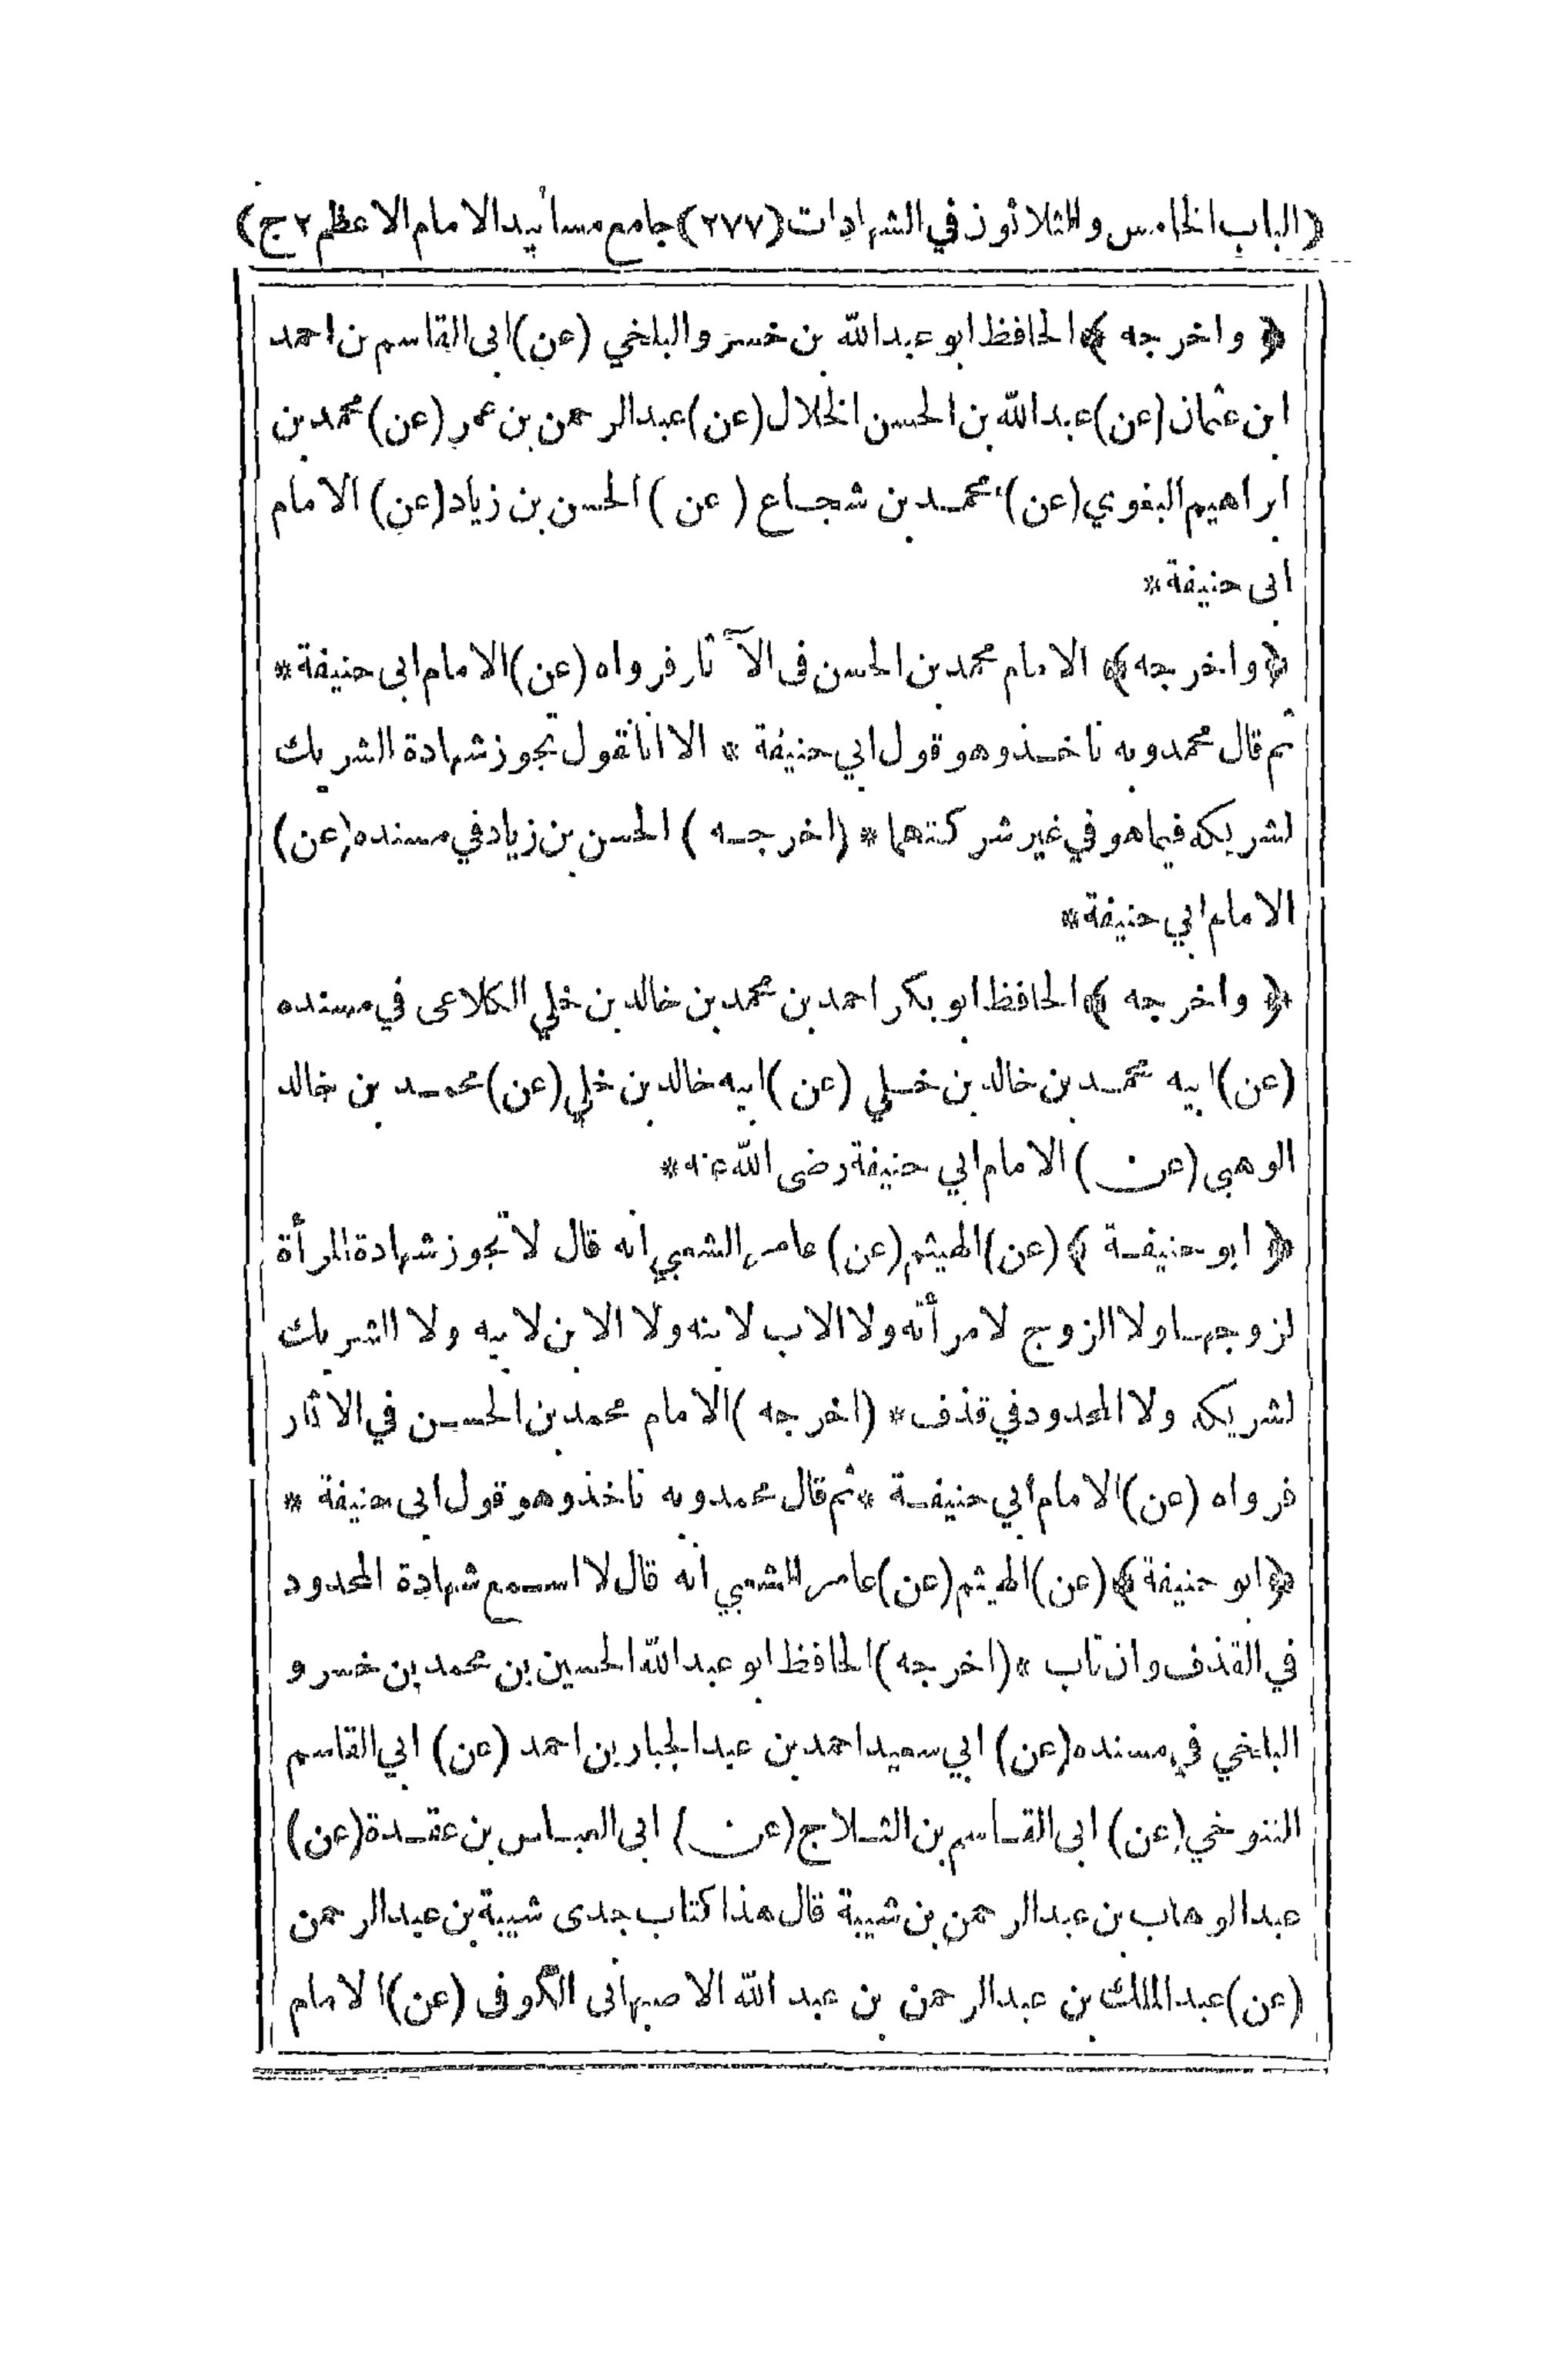 (الباب الخامس والثلاثون في الشهادات (٢٧٧) جامع مسانيد الامام الاعظم ٢ ج)
﴿ واخرجه ﴾ الحافظ ابو عبدالله بن خسر والبلخي (عن) ابى القاسم بن احمد
ابن عثمان (عن) عبدالله بن الحسن الخلال (عن) عبدالرحمن بن عمر (عن) محمد بن
ابراهيم البغوي (عن) محمد بن شجاع (عن) الحسن بن زياد (عن) الامام
ابى حنيفة *
﴿واخرجه﴾ الامام محمد بن الحسن فى الآثار فرواه (عن) الامام ابى حنيفة *
ثم قال محمد وبه ناخذ وهو قول ابي حنيفة * الا انا نقول تجوز شهادة الشريك
لشريكه فيما هو في غير شركتهما * (اخرجه) الحسن بن زياد في مسنده (عن)
الامام ابي حنيفة *
﴿ واخرجه ﴾ الحافظ ابو بكر احمد بن محمد بن خالد بن خلي الكلاعى في مسنده
(عن) ابيه محمد بن خالد بن خلي (عن) ابيه خالد بن خلي (عن) محمد بن خالد
الوهبي (عن) الامام ابي حنيفة رضى الله عنه *
﴿ ابو حنيفة ﴾ (عن) الهيثم (عن) عامر الشعبي انه قال لا تجوز شهادة المرأة
لزوجها ولا الزوج لامرأته ولا الاب لابنه ولا الابن لابيه ولا الشريك
لشريكه ولا المحدود في قذف * (اخرجه) الامام محمد بن الحسن في الاثار
فرواه (عن) الامام ابي حنيفة * ثم قال محمد وبه ناخذ وهو قول ابى حنيفة *
﴿ابو حنيفة﴾ (عن) الهيثم (عن) عامر الشعبي انه قال لا اسمع شهادة المحدود
في القذف وان تاب * (اخرجه) الحافظ ابو عبدالله الحسين بن محمد بن خسر و
البلخي في مسنده (عن) ابي سعيد احمد بن عبدالجبار بن احمد (عن) ابي القاسم
التنوخي (عن) ابى القاسم بن الثلاج (عن) ابى العباس بن عقدة (عن)
عبدالوهاب بن عبدالرحمن بن شيبة قال هذا كتاب جدى شيبة بن عبدالرحمن
(عن) عبدالملك بن عبدالرحمن بن عبد الله الاصبهانى الكوفى (عن) الامام